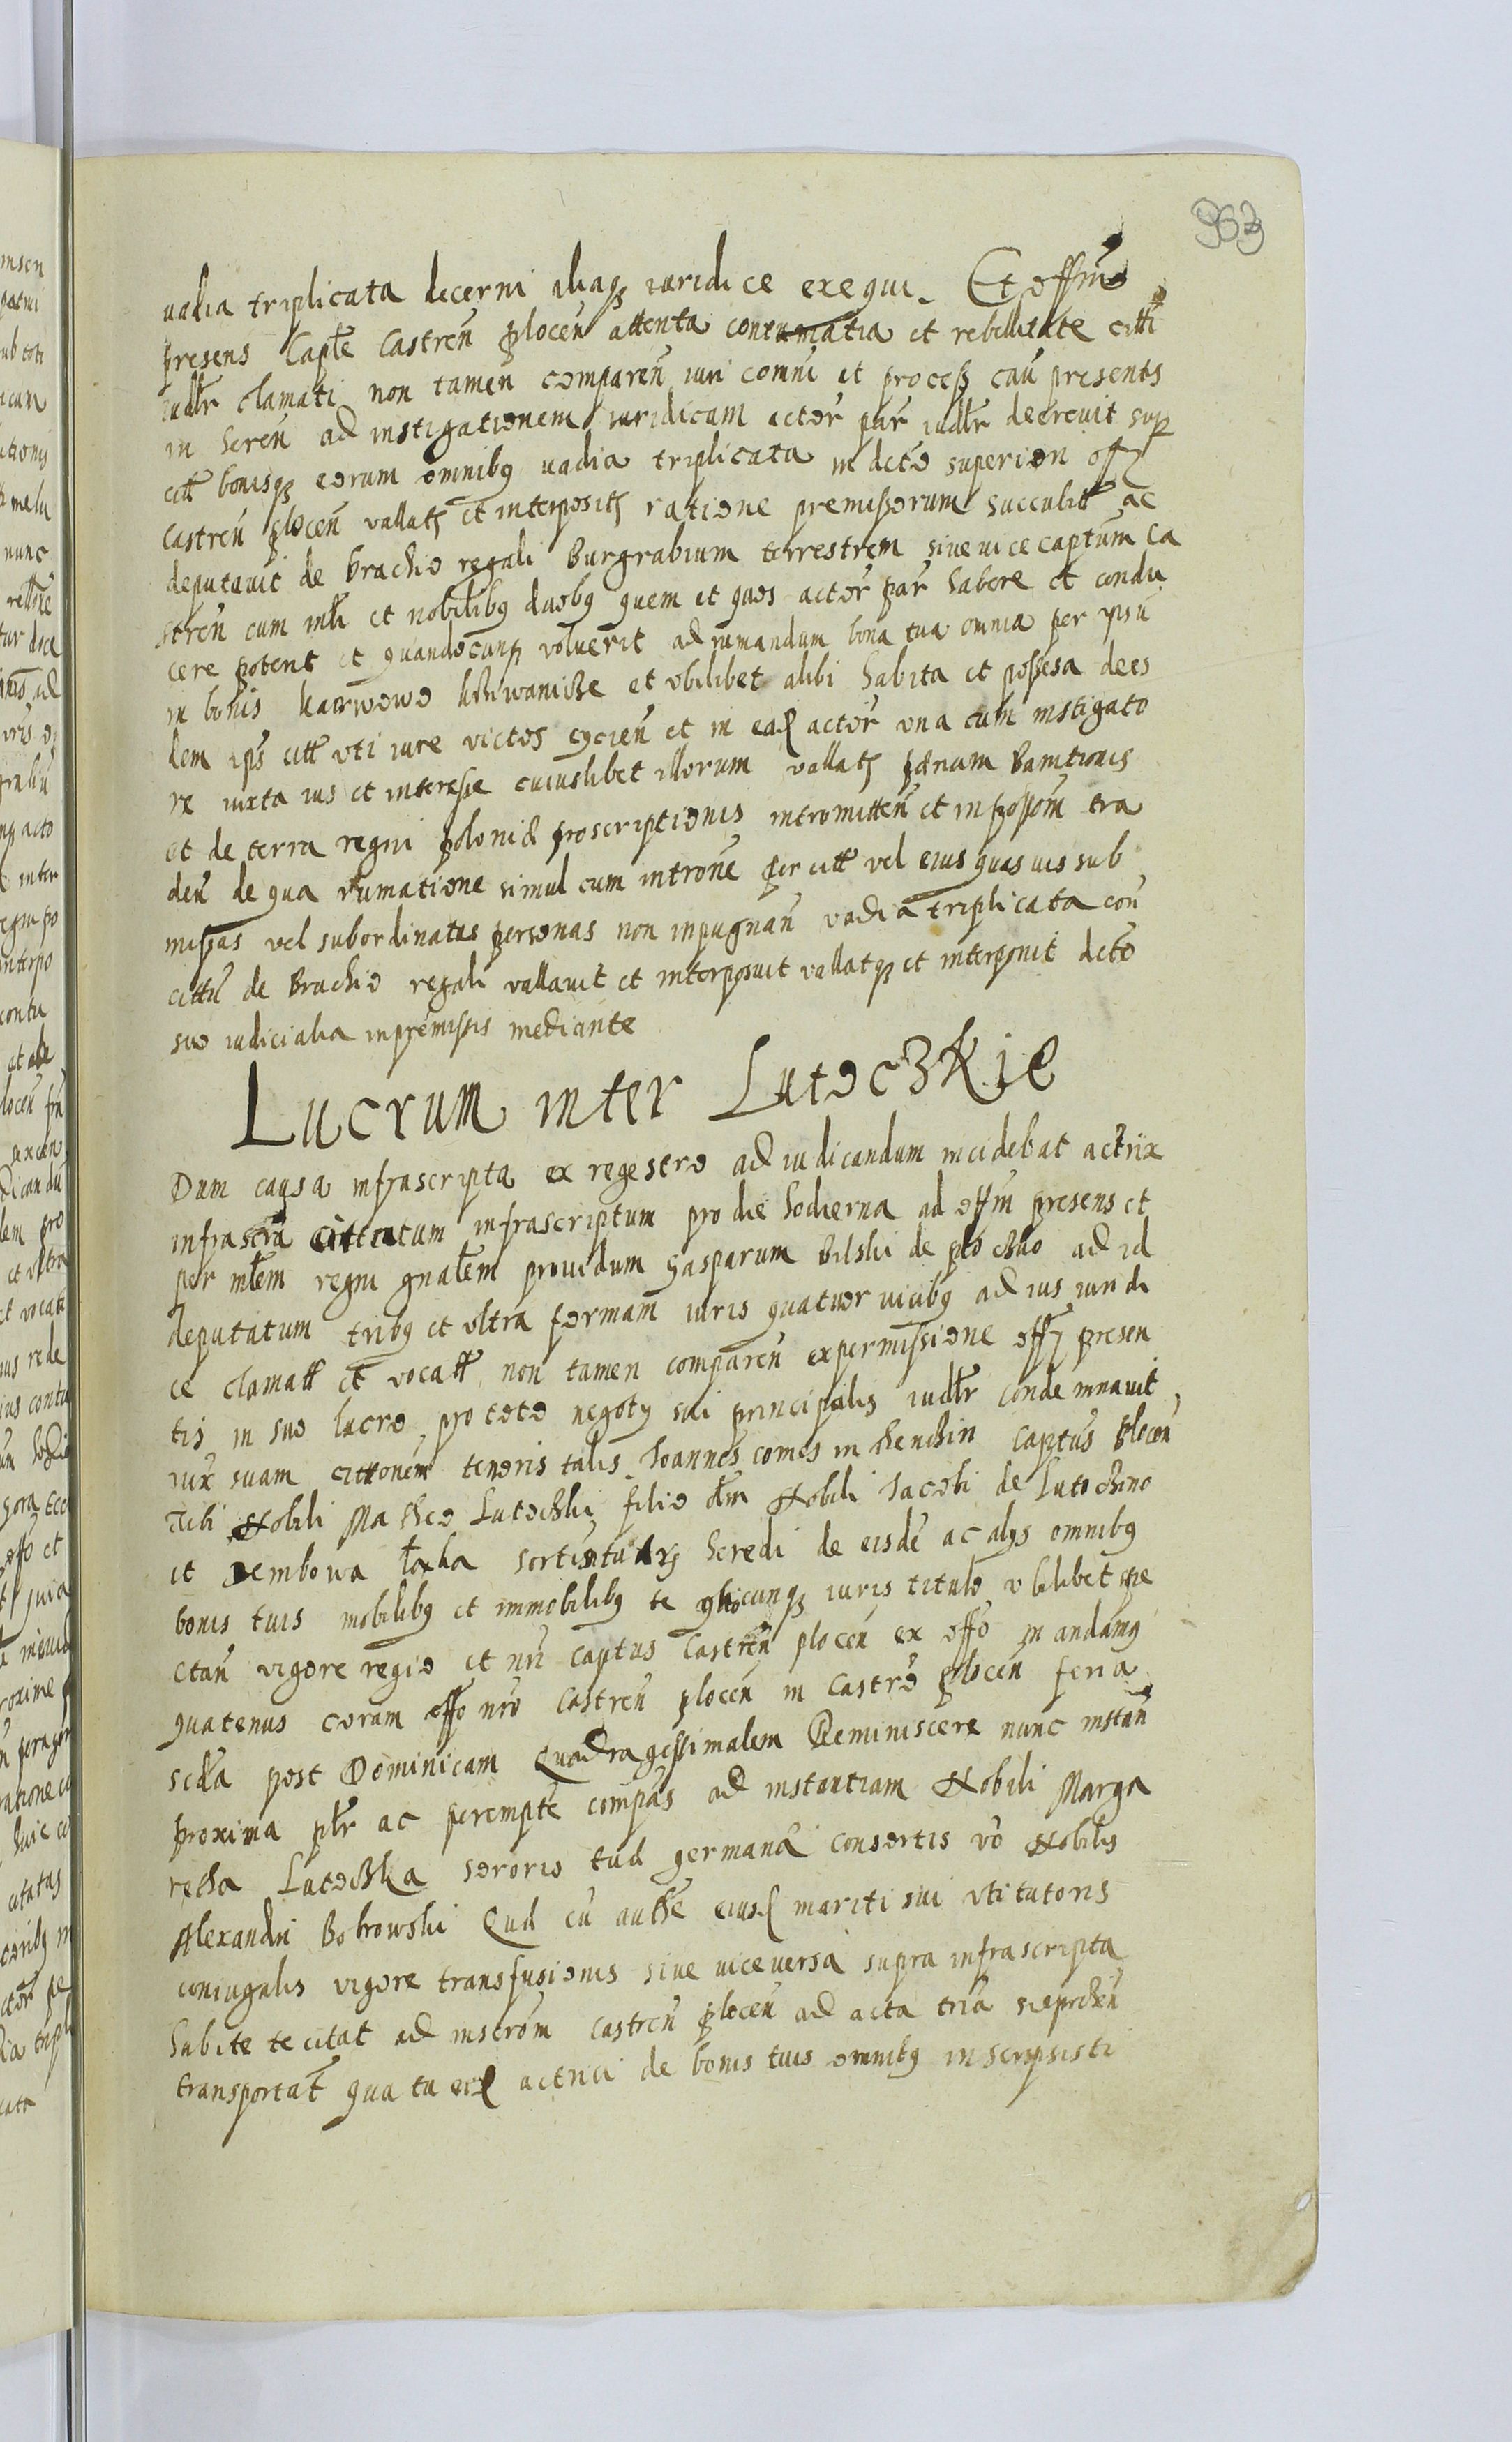 963
uadia triplicata decerni aliaqȝ iuridice exequi. Et offm
presens Capte Castren̄ plocen̄ attenta contumatia et rebellitate citti
iudłr clamati non tamen comparen̄ iuri comuni et process̨ cau̅ presents
in heren̄ ad instigationem iuridicam actor par iudłr decreuit sup
citt bonisqȝ eorum omnibȝ uadia triplicata in dcto superiori off
Castren̄ plocen̄ vallatȝ et interpositȝ ratione premissorum succubitt ac
deputauit de brachio regali Burgrabium terrestrem siue uice captum Ca
stren̄ cum mtli et nobilibȝ duobȝ quem et quos actor par habere et condu
cere poterit et quandocunqȝ voluerit ad rumandum bona tua omnia per ipsu̅
in bonis karwowo et vbilibet alibi habita et possesa de eis
dem ips citt vti iure victos eycien̄ et in ead actor vna cum instigato
re iuxta ius et interesse cuiuslibet illorum vallatȝ poenam Banitionis
et de terra regni poloniæ proscriptionis intromitten̄ et in possom̄ tra
den̄ de qua rumatione simul cum introne per citt vel eius quasuis sub
missas vel subordinatas personas non inpugnan̄ vadia triplicata con
cittu̅ de Brachio regali vallauit et interposuit vallatqȝ et interponit dcto
suo iudicialia in premissis mediante
Lucrum inter Lutoczkie
Dum causa infrascripta ex regestro ad iudicandum incidebat actrix
infrascra cittatum infrascriptum pro die hodierna ad offm presens et
per mtem regni gnałem prouidum Gasparum bilski de ad id
deputatum tribȝ et vltra formam iuris quatuor uicibȝ ad ius iuridi
ce clamatt et vocatt non tamen comparen̄ ex permissione offy presen
tis in suo lucro pro toto negoty sui principalis iudłr condemnauit
iux suam cittonem tenoris talis. Ioannes comes in captus plocen̄
Tibi Nobili Matheo Lutoczki filio olm Nobili Iacobi de Lutoczino
et Dembowa łaxka heredi de eisde̅ ac alys omnibȝ
bonis tuis mobilibȝ et immobilibȝ te quocunqȝ iuris titulo vbilibet spe
ctan̄ vigore regio et nri captus Castren̄ plocen̄ ex offo mandamȝ
quatenus coram offo nro Castren̄ plocen̄ in Castro plocen̄ feria
scda post Dominicam Quadragessimalem Reminiscere nunc instan̄
proxima płr ac perempte compas ad instantiam Nobili Marga
retha Lutoczka sororis tuæ germanæ consortis vo Nobilis
Alexandri Bobrowski Quæ cu̅ authe eiusd mariti sui vti tutoris
coniugalis vigore transfusionis siue uiceversa supra infrascripta
habite te citat ad inscrom castren̄ plocen̄ ad acta tria sieprchen̄
transportat̄ qua tu eid actrici de bonis tuis omnibȝ inscripsisti